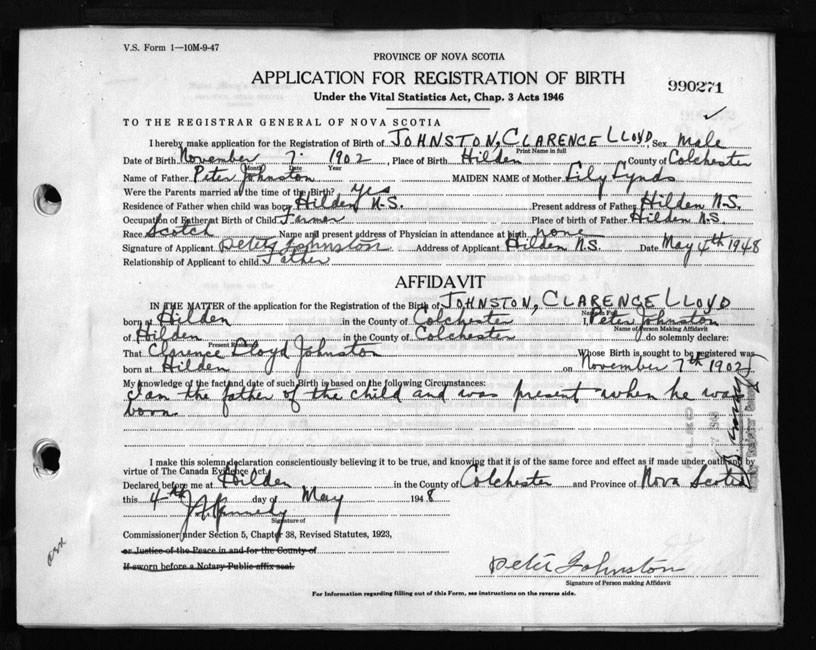 V.S. Form 1—10M-9-47
PROVINCE OF NOVA SCOTIA
APPLICATION FOR REGISTRATION OF BIRTH
990271
Under the Vital Statistics Act, Chap. 3 Acts 1946
TO THE REGISTRAR GENERAL OF NOVA SCOTIA
I hereby make application for the Registration of Birth of JOHNSTON, CLARENCE LLOYD, Sex Male
Print Name in full
Date of Birth November 7. 1902, Place of Birth Hilden County of Colchester
Month Date Year
Name of Father Peter Johnston MAIDEN NAME of Mother Lily Lynds
Were the Parents married at the time of the Birth? Yes
Residence of Father when child was born Hilden N.S. Present address of Father Hilden N.S.
Occupation of Father at Birth of Child Farmer Place of birth of Father Hilden N.S.
Race Scotch Name and present address of Physician in attendance at birth none
Signature of Applicant Peter Johnston Address of Applicant Hilden N.S. Date May 4th 1948
Relationship of Applicant to child Father
AFFIDAVIT
IN THE MATTER of the application for the Registration of the Birth of JOHNSTON, CLARENCE LLOYD
born at Hilden in the County of Colchester I, Peter Johnston
Name of Person Making Affidavit
of Hilden in the County of Colchester do solemnly declare:
That Clarence Lloyd Johnston Whose Birth is sought to be registered was
born at Hilden on November 7th 1902
My knowledge of the fact and date of such Birth is based on the following Circumstances:
I am the father of the child and was present when he was
born
I make this solemn declaration conscientiously believing it to be true, and knowing that it is of the same force and effect as if made under oath and by
virtue of The Canada Evidence Act.
Declared before me at Hilden in the County of Colchester and Province of Nova Scotia
this 4th day of May 1948
Kennedy
Signature of
Commissioner under Section 5, Chapter 38, Revised Statutes, 1923,
or Justice of the Peace in and for the County of
If sworn before a Notary Public affix seal.
Peter Johnston
Signature of Person making Affidavit
For Information regarding filling out of this Form, see instructions on the reverse side.